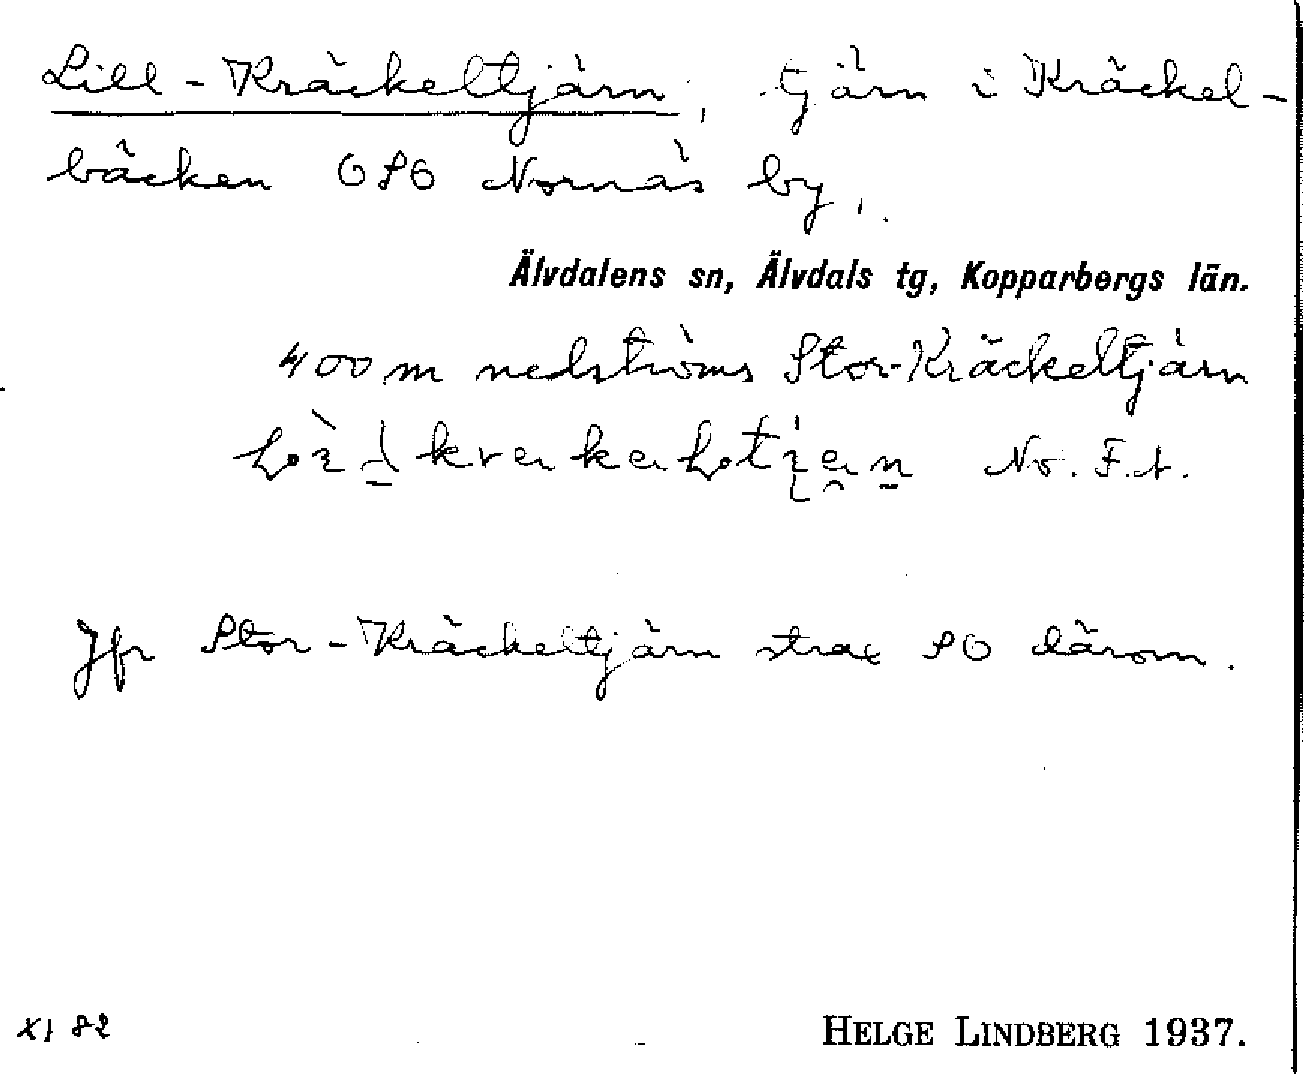 Lill-Kräckeltjärn, tjärn i Kräckel-
bäcken OSO Nornäs by,.
Älvdalens sn, Älvdals tg, Kopparbergs län.
400 m nedströms Stor-Kräckeltjärn
No. F.t.
Jfr Stor-Kräckeltjärn strax SO därom.
X) 82
HELGE LINDBERG 1937.